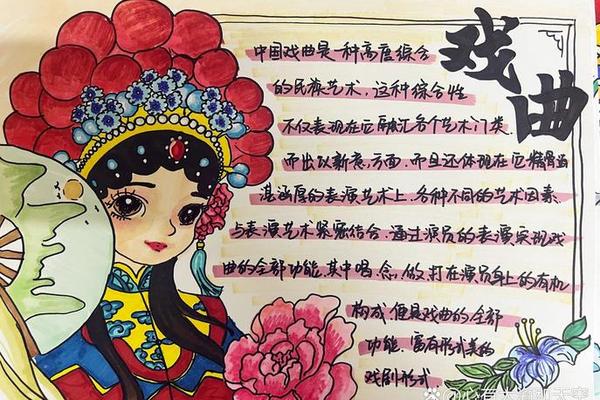 戏曲
中国戏曲是一种高度综合
的民族艺术，这种综合性
不仅表现在它融汇各个艺术门类
而出以新意，方面，而且还体现在它精骨涵
湛涵厚的表演艺术上，各种不同的艺术因素、
与表演艺术紧密结合，通过演员的表演实现戏
曲的全部功能，其中唱、念、做、打在演员身上的有机
构成，但是戏曲的全部
功能、富有形式美的
戏剧形式